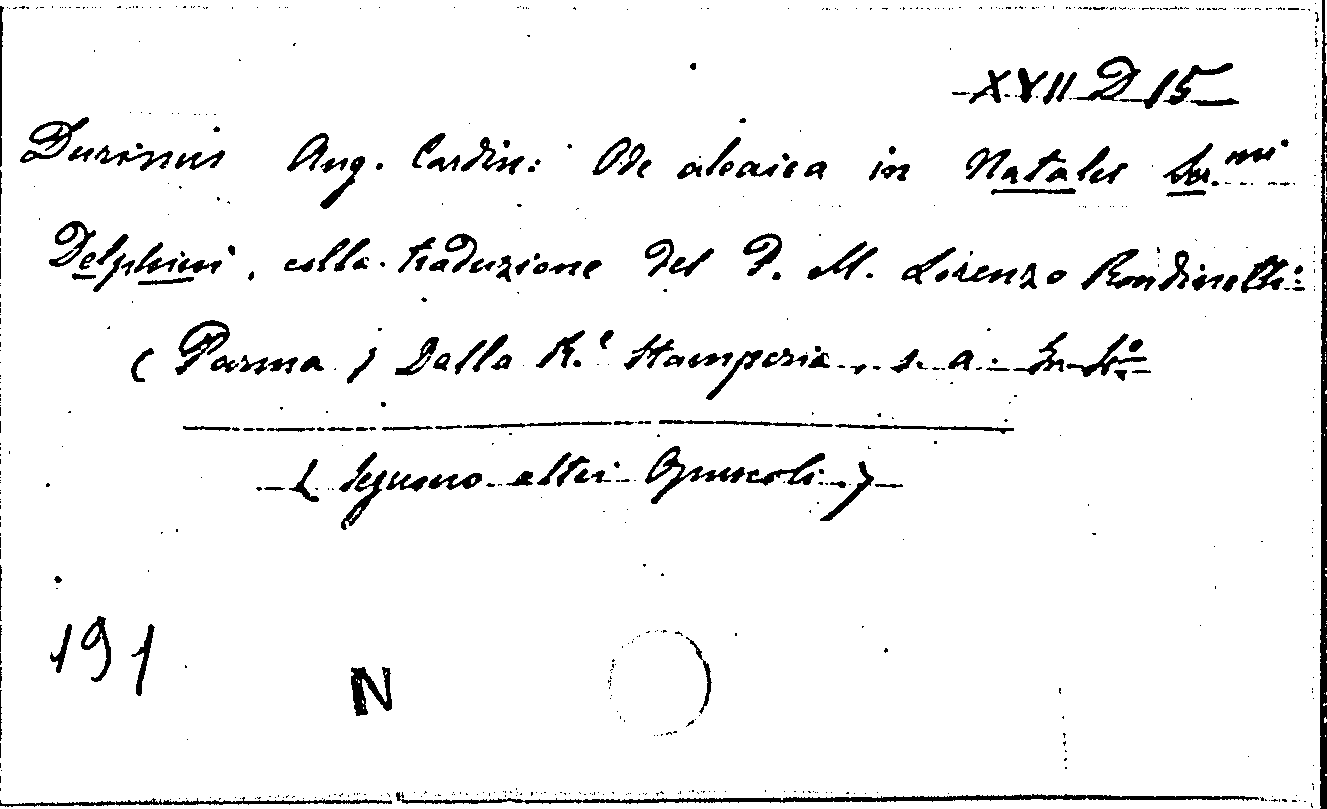 XVII D 15
Durinius Ang. Cardin: Ode alcaica in Natales Ser.mi
Delphini, colla traduzione del P. M. Lorenzo Rondinetti:
(Parma) Dalla R.e Stamperia, s. a. In 4.o
(Seguono altri Opuscoli.)
191
N